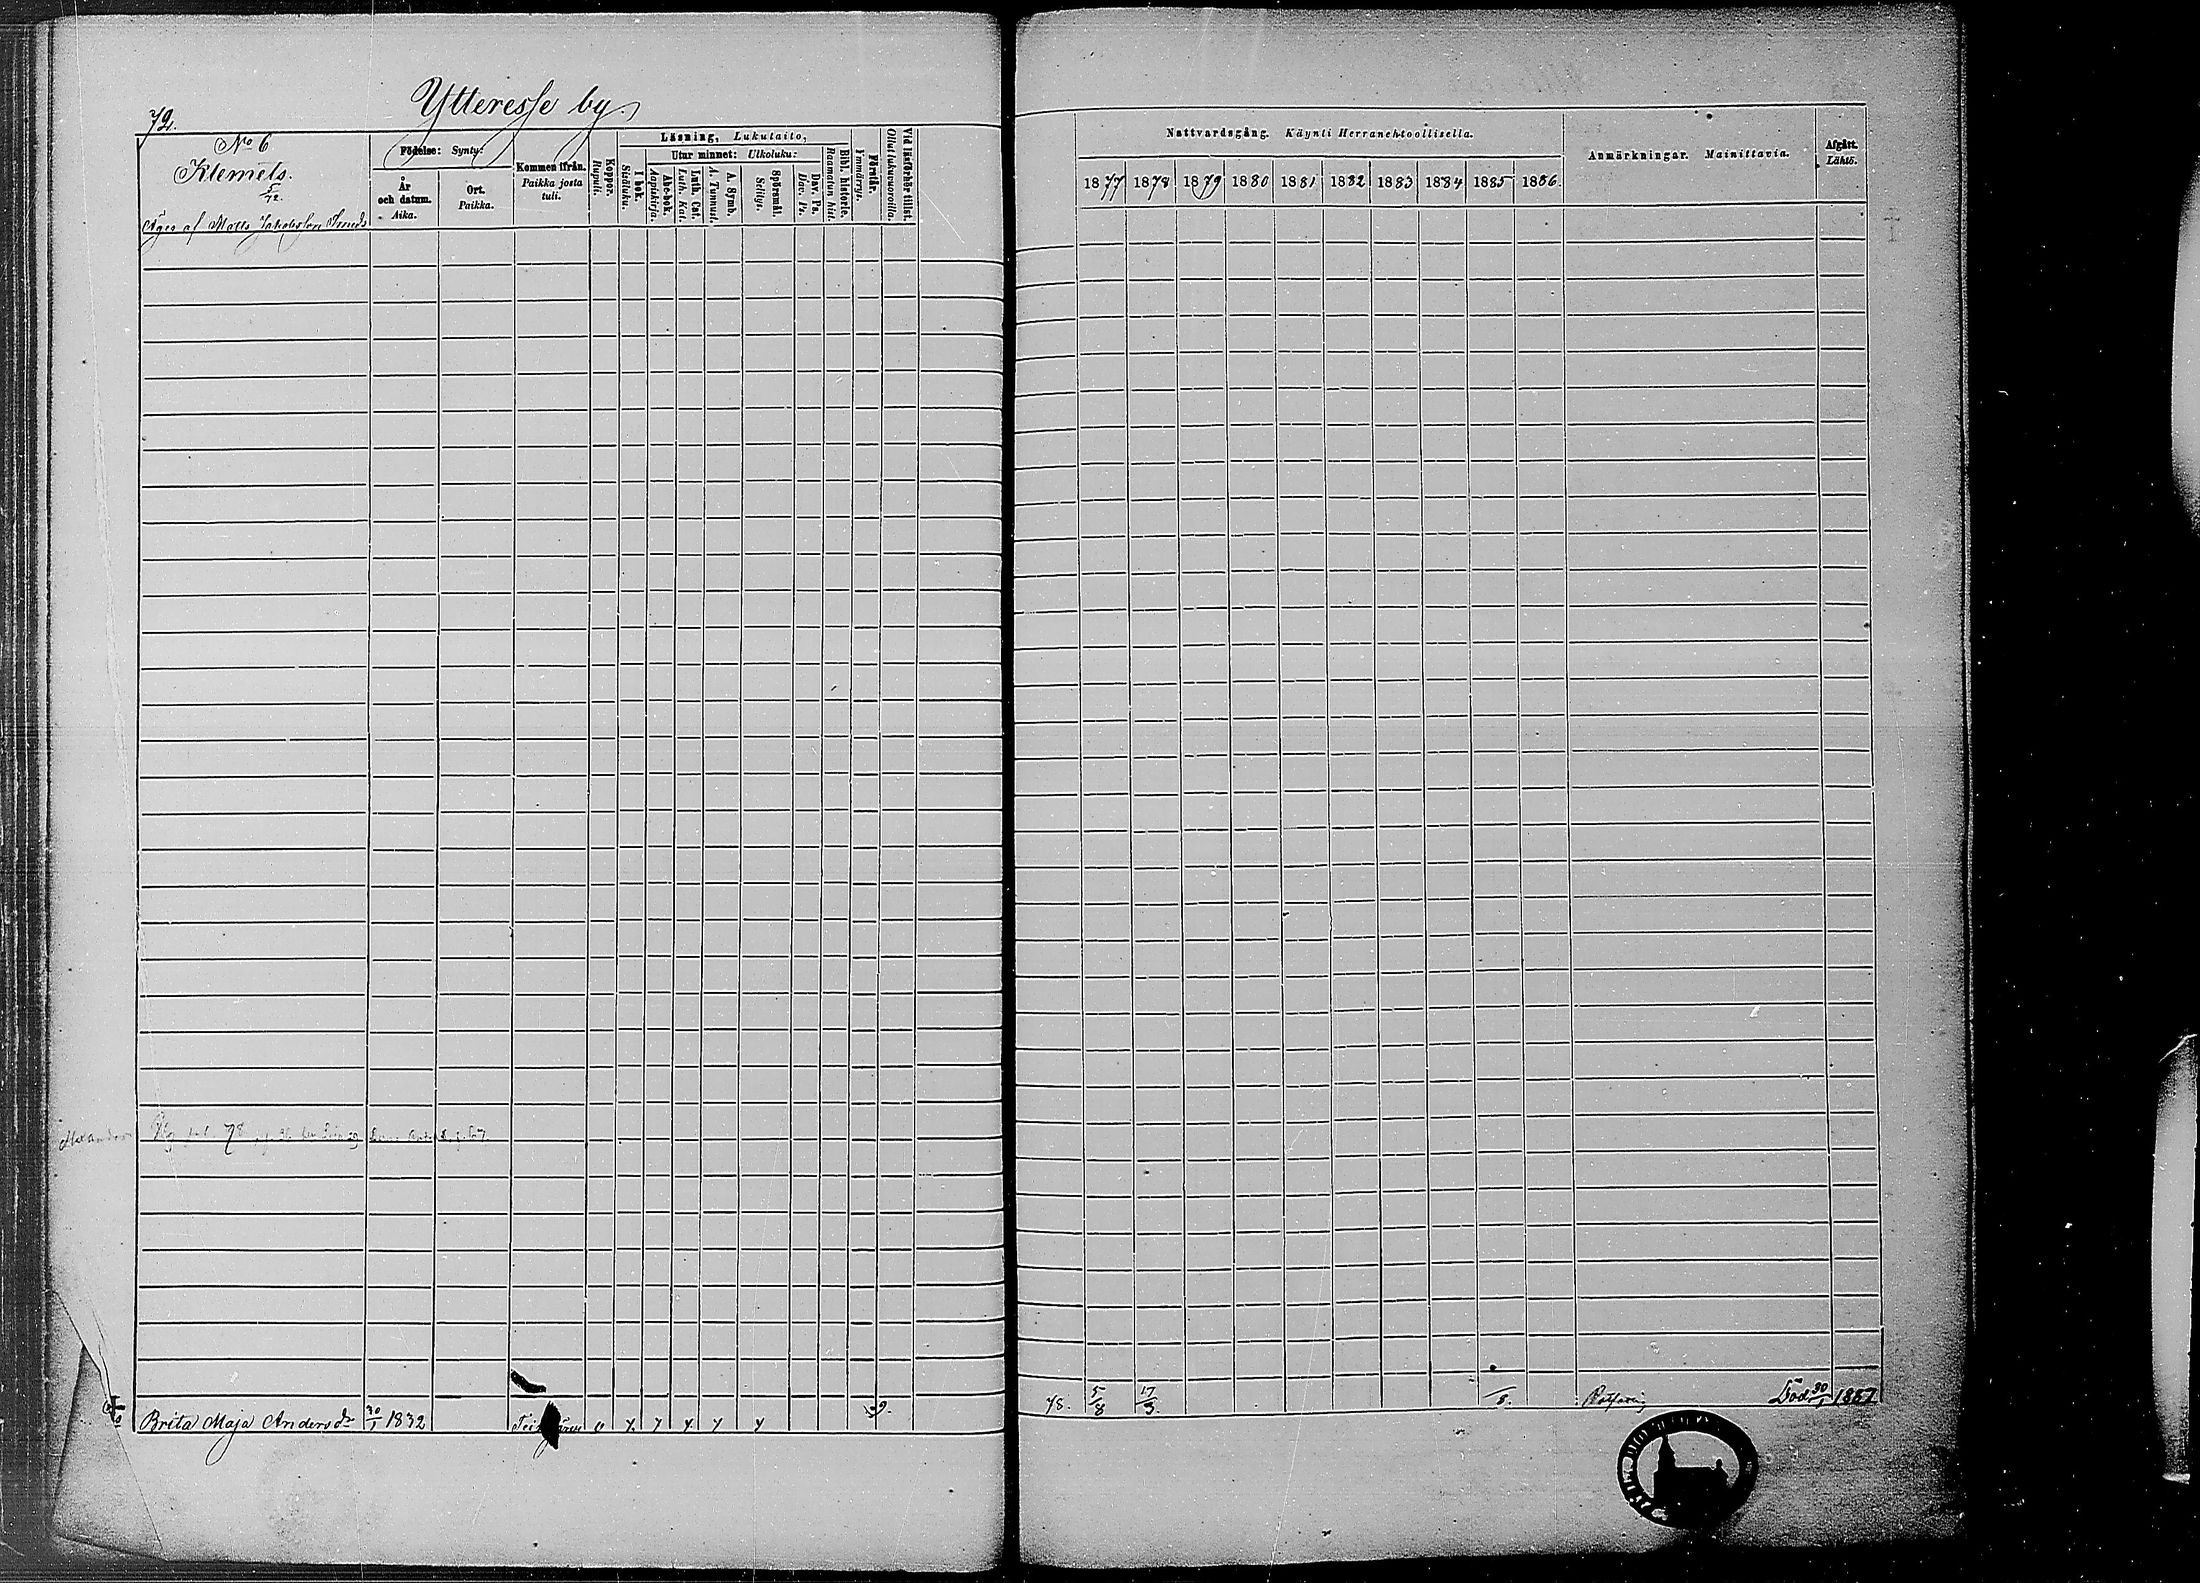 72.
Ytteresse by.
No 6
Klemets.
5/72.
Äges af Matts Jakobsson
Födelse: Synty:
År och datum. Aika.
Ort. Paikka.
Kommen ifrån. Paikka josta tuli.
Koppor. Rupuli.
Läsning, Lukutaito,
I bok. Sisäluku.
Utur minnet: Ulkoluku:
Abc-bok. Aapiskirja.
Luth. Cat. Luth. Kat.
A. Symb. A. Tunnust.
Spörsmål. Selitys.
Dav. Ps. Dav. Ps.
Bibl. historie. Raamatun hist.
Förstår. Ymmärrys.
Vid läsförhör tillst. Ollut lukuvuoroilla.
Nattvardsgång. Käynti Herranehtoollisella.
1877 1878 1879 1880 1881 1882 1883 1884 1885 1886.
Anmärkningar. Mainittavia.
Afgått. Lähtö.
Alexander
78
Brita Maja Anders dr 30/1 1832 0 78. 5/8 17/3 Död 30/1 1887